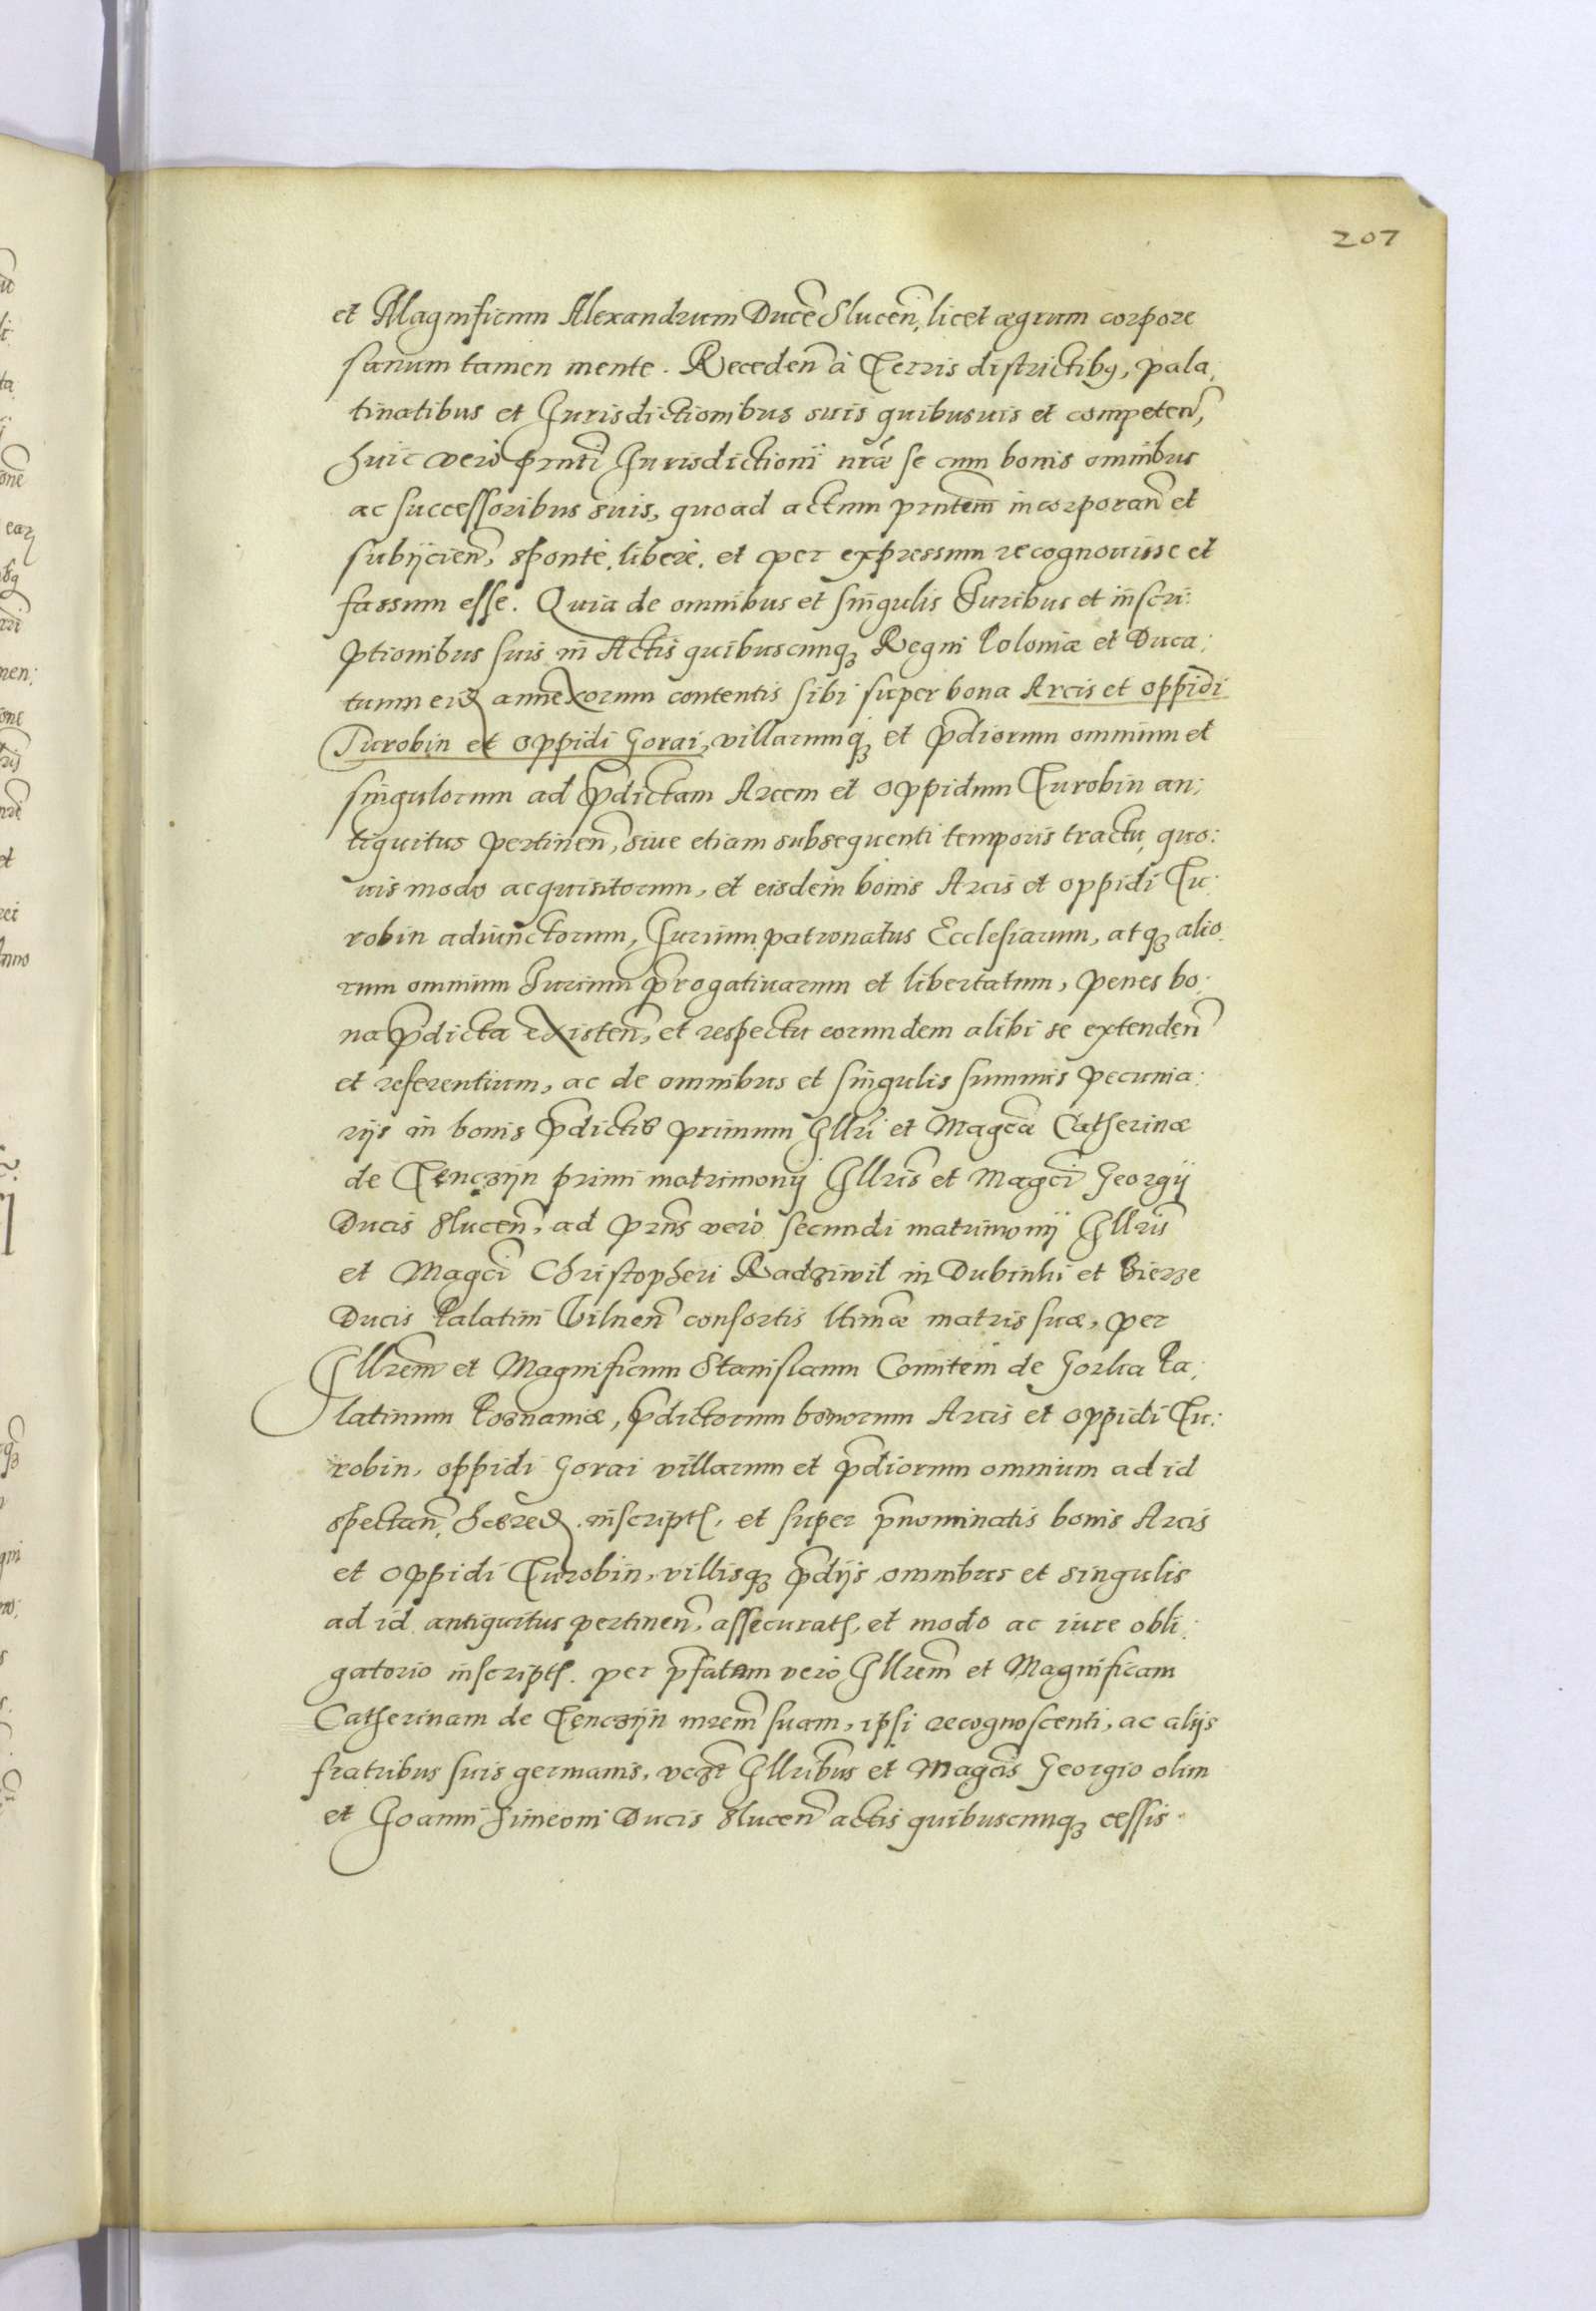 207
et Magnificum Alexandrum Ducē Slucen̄, licet ægrum corpore
sanum tamen mente. Receden̄ à Terris districtibꝰ, pala;
tinatibus et Jurisdictionibus suis quibusuis et competen̄,
huic verò pn̄ti Jurisdictioni nr̄æ se cum bonis omnibus
ac successoribus suis, quoad actum pn̄tem incorporan̄ et
subijcien̄, spontè, liberè, et per expressum recognouisse et
fassum esse. Quia de omnibus et singulis Juribus et inscri:
ptionibus suis in Actis quibuscunqꝫ Regni Poloniæ et Duca:
tuum eid annexorum contentis sibi super bona Arcis et oppidi
Turobin et oppidi Gorai, villarumqꝫ et p̄diorum omnium et
singulorum ad p̄dictam Arcem et oppidum Turobin an:
tiquitus pertinen̄, siue etiam subsequenti temporis tractu, quo:
uis modo acquisitorum, et eisdem bonis Arcis et oppidi Tu:
robin adiunctorum, Jurium patronatus Ecclesiarum, atqꝫ alio
rum omnium Jurium p̄rogatiuarum et libertatum, penes bo:
na p̄dicta existen̄, et respectu eorundem alibi se extenden̄
et referentium, ac de omnibus et singulis summis pecunia:
rijs in bonis p̄dictis primum Jllri et Magcæ Catherinæ
de Tenczyn primi matrimonij Jllris et Magci Georgij
Ducis Slucen̄, ad pn̄s verò secundi matrimonij Jllris
et Magci Christopheri Radziwil in Dubinki et Bierze
Ducis Palatini Vilnen̄ consortis ltimæ matris suæ, per
Jllrem et Magnificum Stanislaum Comitem de Gorka Pa:
latinum Posnaniæ, p̄dictorum bonorum Arcis et oppidi Tu:
robin, oppidi Gorai villarum et p̄diorum omnium ad id
spectan̄, hered inscriptꝭ, et super p̄nominatis bonis Arcis
et oppidi Turobin, villisqꝫ p̄dijs omnibus et singulis
ad id antiquitus pertinen̄, assecuratꝭ, et modo ac iure obli:
gatorio inscriptꝭ. per p̄fatam verò Jllrem et Magnificam
Catherinam de Tenczyn mrem suam, ipsi recognoscenti, ac alijs
fratribus suis germanis, Jllribus et Magcis Georgio olim
et Joanni Simeoni Ducis Slucen̄ actis quibuscunqꝫ cessis